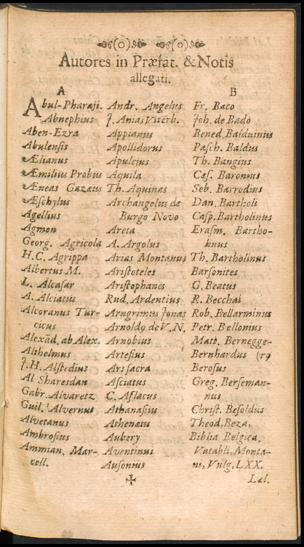 Autores in Præfat. & Notis
allegati.
A
Abul-Pharaji.
Abnephius
Aben-Ezra
Abulensis
Ælianus
Æmilius Probus
Æneas Gazæus
Æschylus
Agellius
Agmon
Georg. Agricola
H.C. Agrippa
Albertus M.
L. Alcasar
A. Alciatus
Alcoranus Tur-
cicus
Alexād. ab Alex.
Althelmus
J.H. Alstedius
Al Sharestan
Gabr. Alvaretz
Guil. Alvernus
Alvetanus
Ambrosius
Ammian. Mar-
cell.
Andr. Angelus
J. Anias Viterb.
Appianus
Apollidorus
Apuleius
Aquila
Th. Aquinas
Archangelus de
Burgo Novo
Areta
A. Argolus
Arias Montanus
Aristoteles
Aristophanes
Rud. Ardentius
Arngrimus Jonas
Arnoldg de V.N.
Arnobius
Artesius
Arisacra
Asciatus
C. Aslacus
Athanasius
Athenaeus
Aubery
Aventinus
Ausonius
B
Fr. Baco
Joh. de Bado
Bened. Balduinus
Pasch. Baldus
Th. Bangius
Cæs. Baronius
Seb. Barrodius
Dan. Bartholi
Casp. Bartholinus
Erasm. Bartho-
linus
Th. Bartholinus
Barsonites
G. Beatus
R. Becchai
Rob. Bellarminus
Petr. Bellonius
Matt. Bernegge-
Bernhardus (rg
Berosus
Greg. Berseman-
nus
Christ. Besoldus
Theod. Beza,
Biblia Belgica,
Vatabli, Monta-
ni, Vulg. LXX.
✠